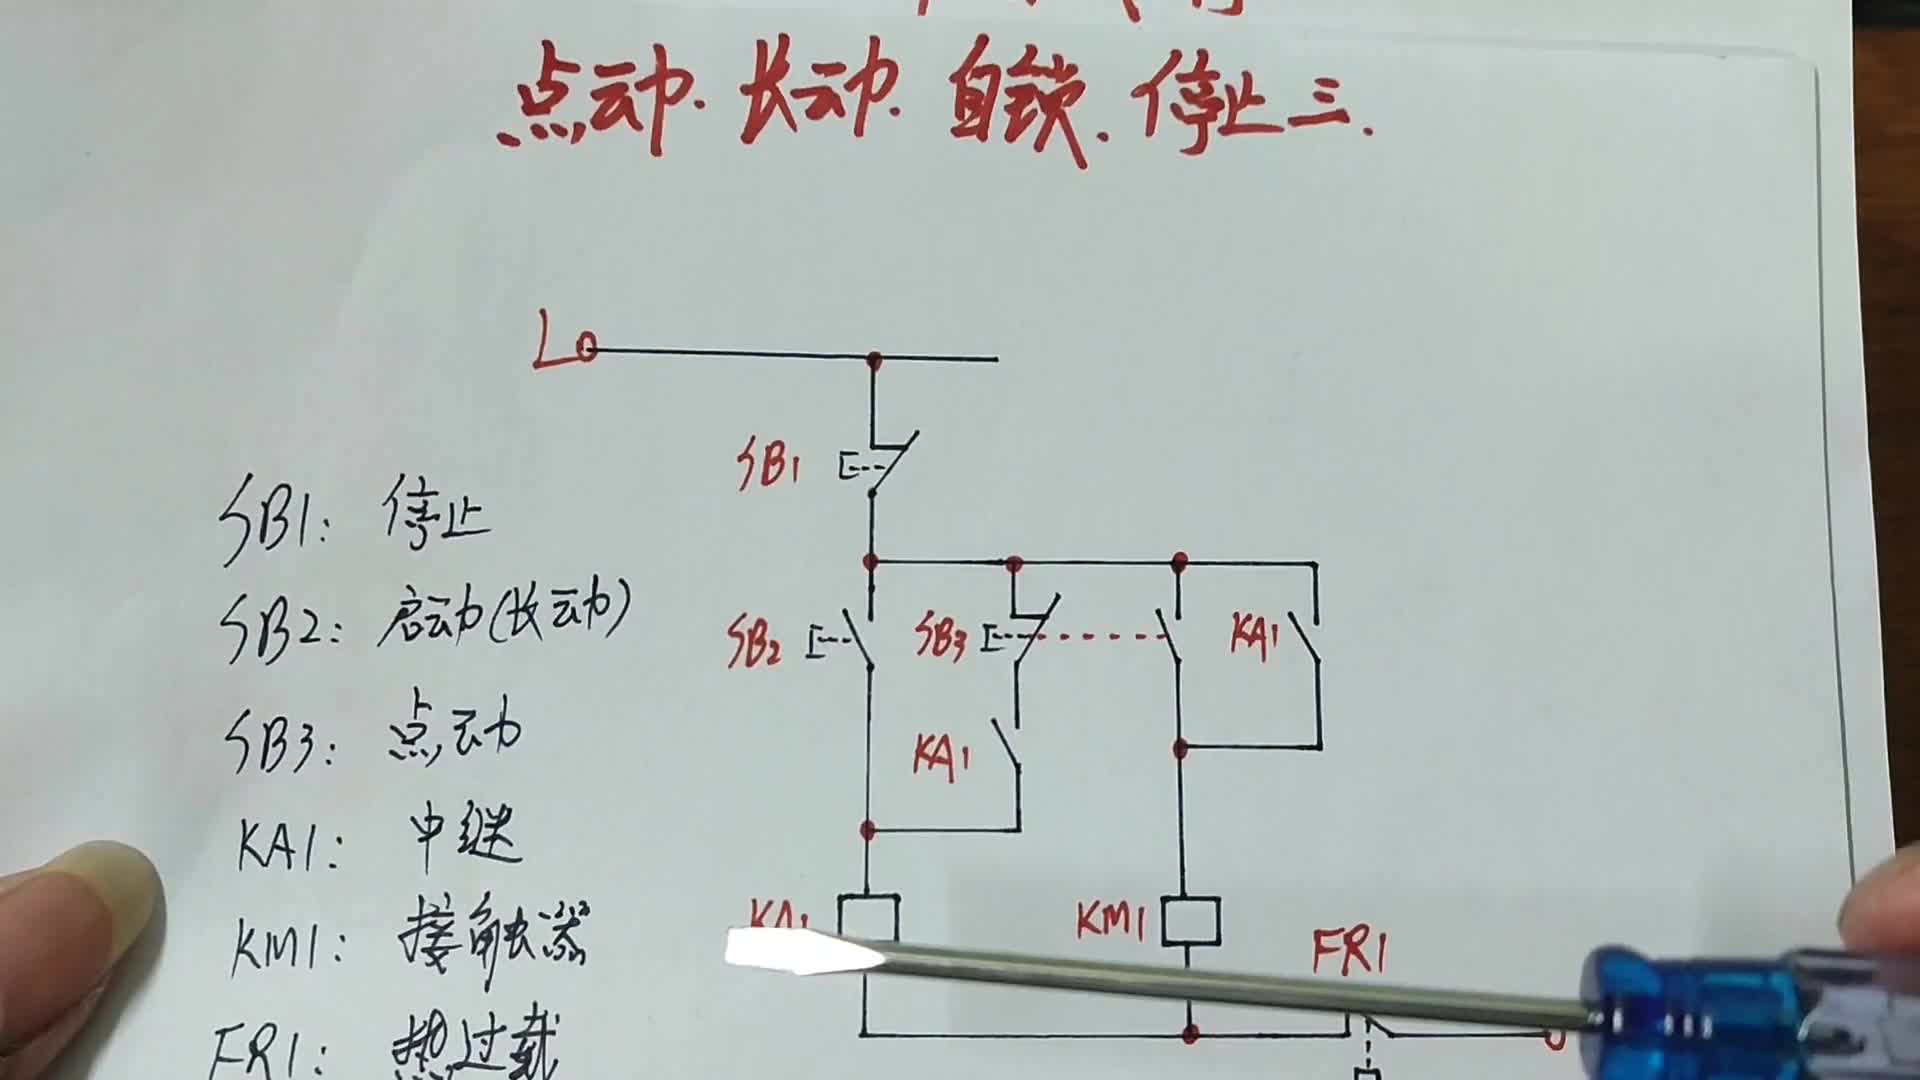 点动.长动.自锁.停止三.
L
SB1
SB1: 停止
SB2: 启动(长动)
SB2
SB3
KA1
SB3: 点动
KA1
KA1: 中继
KA1
KM1
KM1: 接触器
FR1
FR1: 热过载